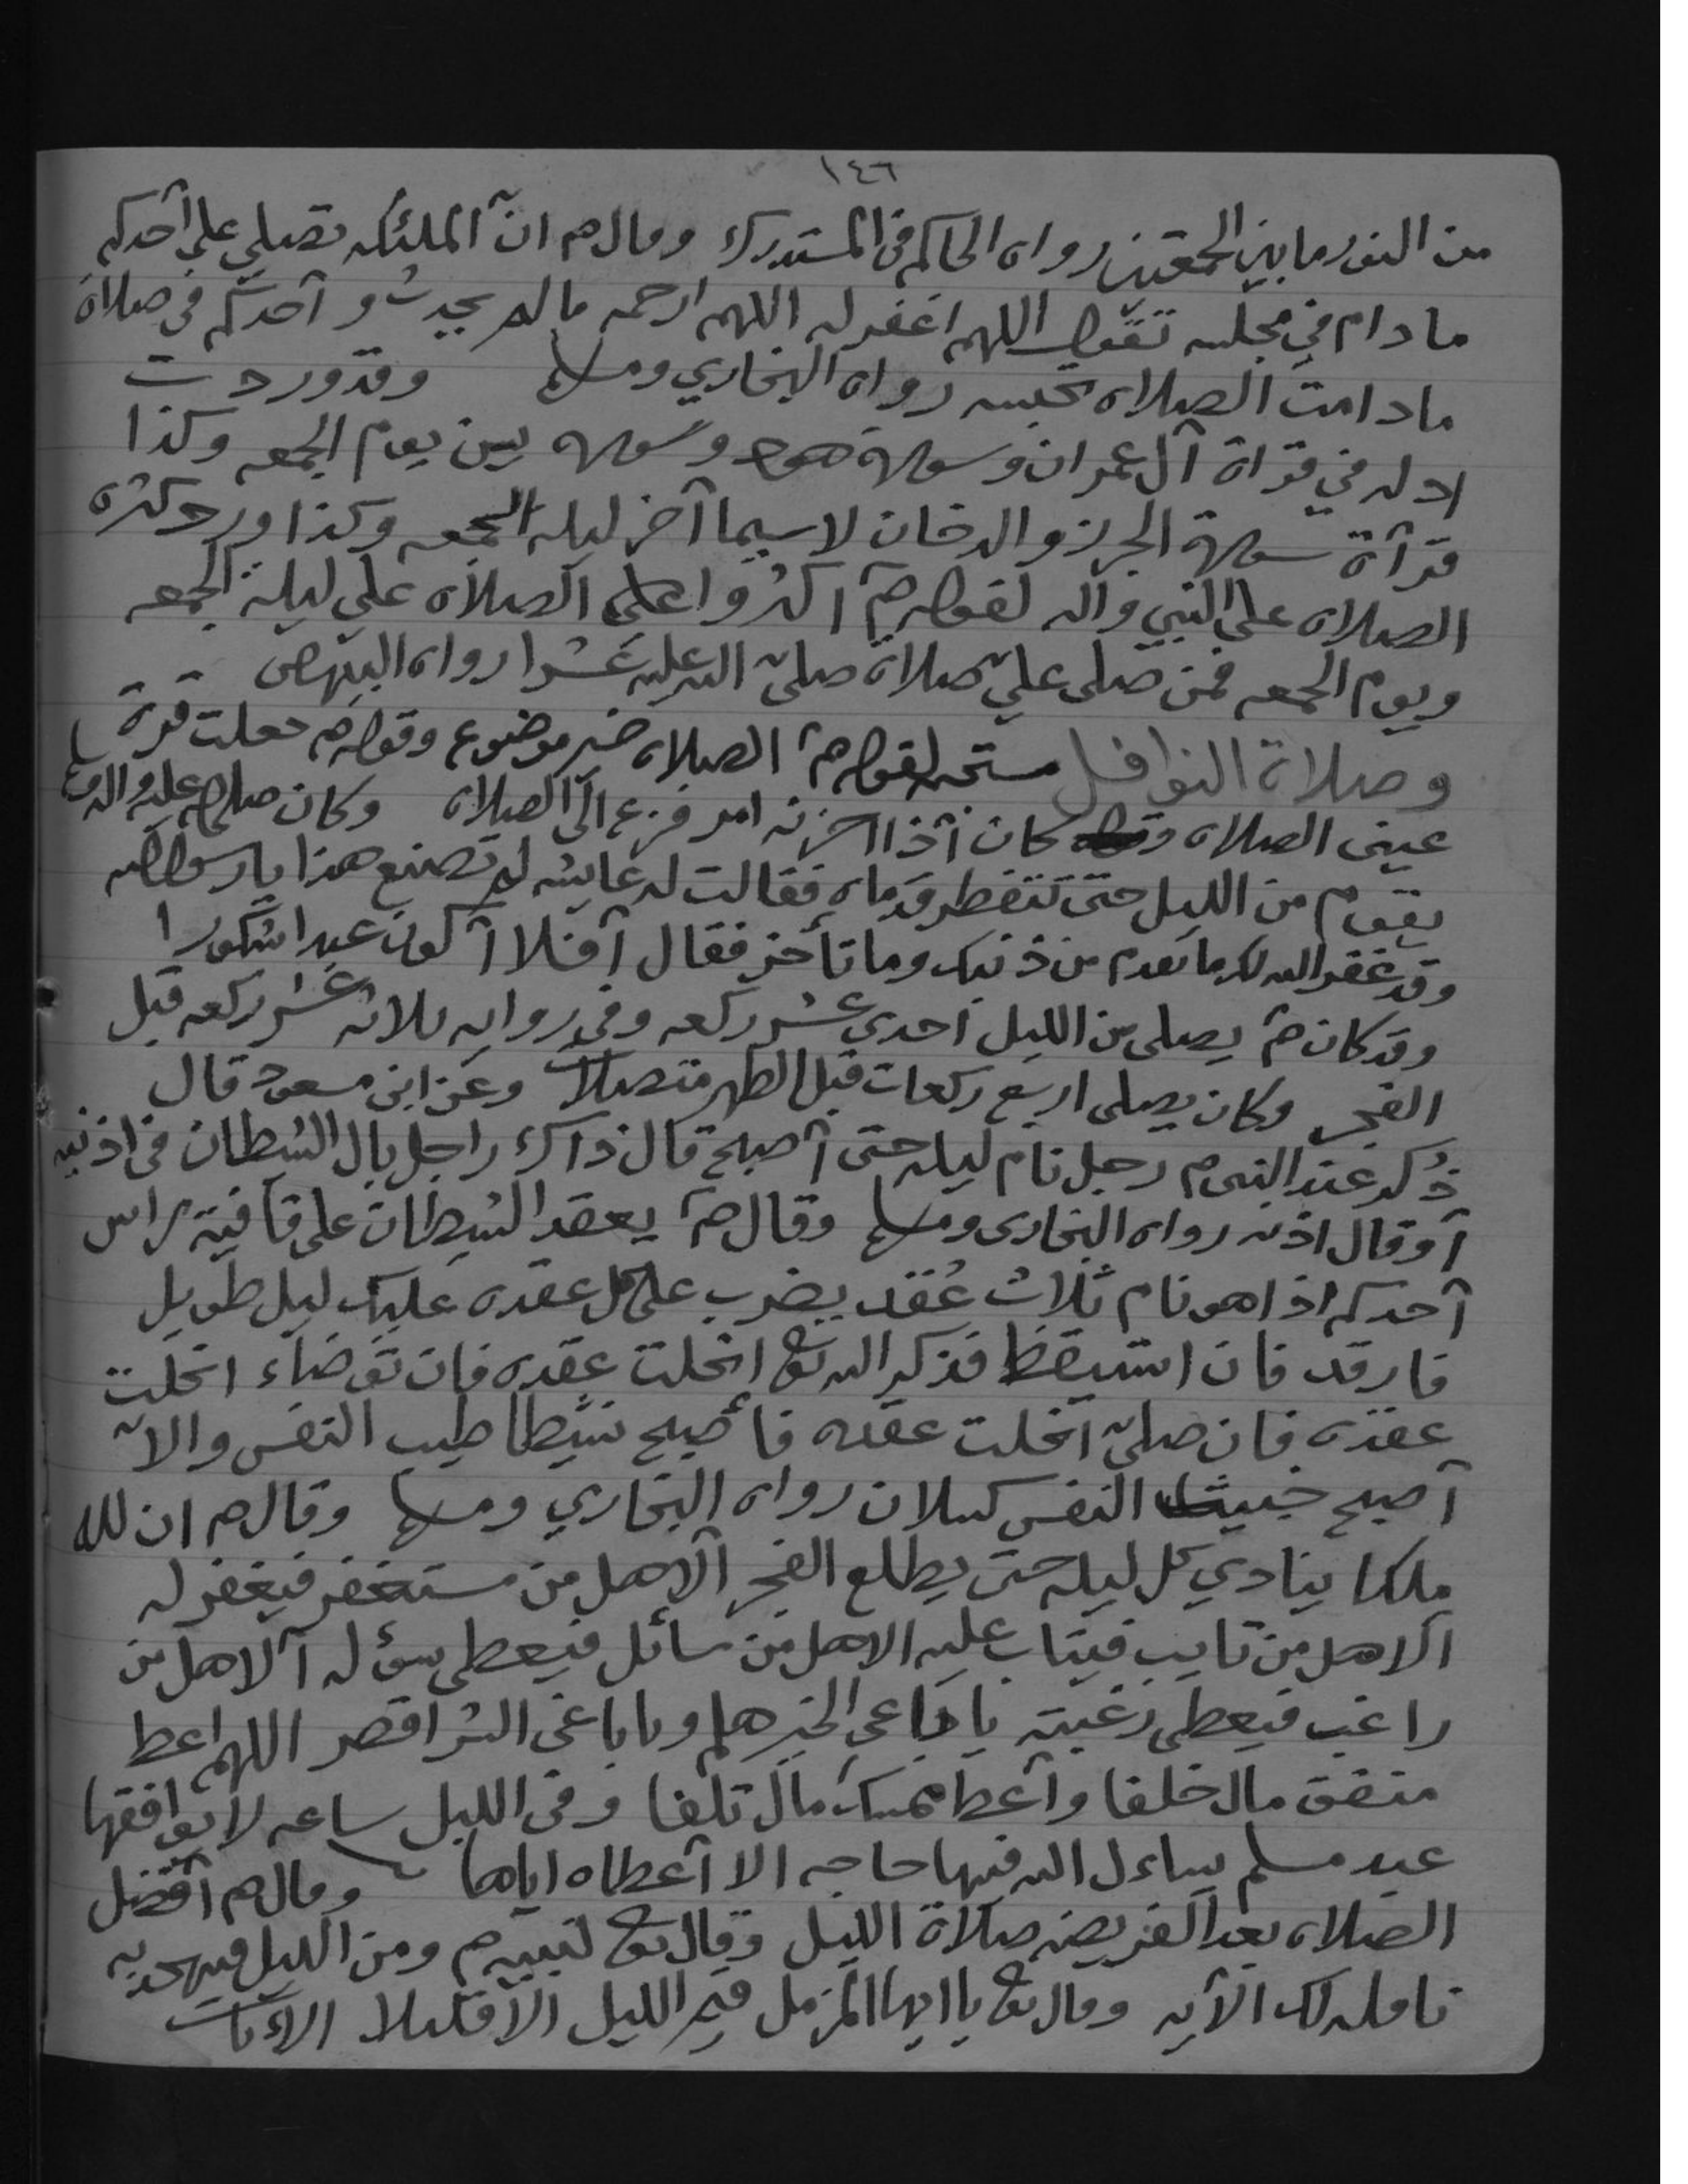 ١٤٦
من النور ما بين الجمعتين رواه الحاكم في المستدرك وقال صم ان الملئكه تصلي على أحدكم
ما دام في مجلسه تقول اللهم اغفر له اللهم ارحمه مالم يحدث و أحدكم في صلاة
مادامت الصلاه تحبسه رواه البخاري ومسلم وقد وردت
ادله في قراة آل عمران وسورة هود وسورة يس يوم الجمعه وكذا
قرآة سورة الحرز والدخان لاسيما آخر ليلة الجمعه وكذا ورد كثرة
الصلاه على النبي وآله لقوله صم أكثروا على الصلاه علي ليلة الجمعه
ويوم الجمعه فمن صلى علي صلاة صلى الله عليه عشرا رواه البيهقي
وصلاة النوافل مستحبه لقوله صم الصلاه خير موضوع وقوله صم جعلت قرة
عيني الصلاه كان أذا احزنه امر فزع الى الصلاه وكان صلى الله عليه واله وسلم
يقوم من الليل حتى تتفطر قدماه فقالت له عايشه لم تصنع هذا يا رسول الله
وقد غفر الله لك ما تقدم من ذنبك وما تأخر فقال أفلا أكون عبدا شكورا
وقد كان صم يصلي من الليل احدى عشر ركعه وفي روايه ثلاثه عشر ركعه قبل
الفجر وكان يصلي اربع ركعات قبل الظهر متصلات وعن ابن مسعود قال
ذُكر عند النبي صم رجل نام ليله حتى أصبح قال ذاك راجل بال الشطان في اذنيه
أو قال اذنه رواه البخاري ومسلم وقال صم يعقد الشيطان على قافية راس
أحدكم اذا هو نام ثلاث عُقد يضرب على كل عقده عليك ليل طويل
فارقد فان استيقظ فذكر الله تع انحلت عقده فان توضاء انحلت
عقده فان صلى انحلت عقده فأصبح نشيطا طيب النفس والا
أصبح خبيث النفس كسلان رواه البخاري ومسلم وقال صم ان لله
ملكا ينادي كل ليله حتى يطلع الفجر ألا هل من مستغفر فيغفر له
ألا هل من تايب فيتاب عليه الا هل من سائل فيعطى سؤله ألا هل من
راغب فيعطى رغبته يا داعى الخير هلم ويا باغى الشر اقصر اللهم اعط
منفق مال خلفا وأعط ممسك مال تلفا وفي الليل ساعه لا يوافقها
عبد مسلم يساءل الله فيها حاجه الا أعطاه اياها وقال صم أفضل
الصلاه بعد الفريضه صلاة الليل وقال تع لنبيه صم ومن الليل فتهجد به
نافله لك الآيه وقال تع يا ايها المزمل قم الليل الا قليلا الآيات